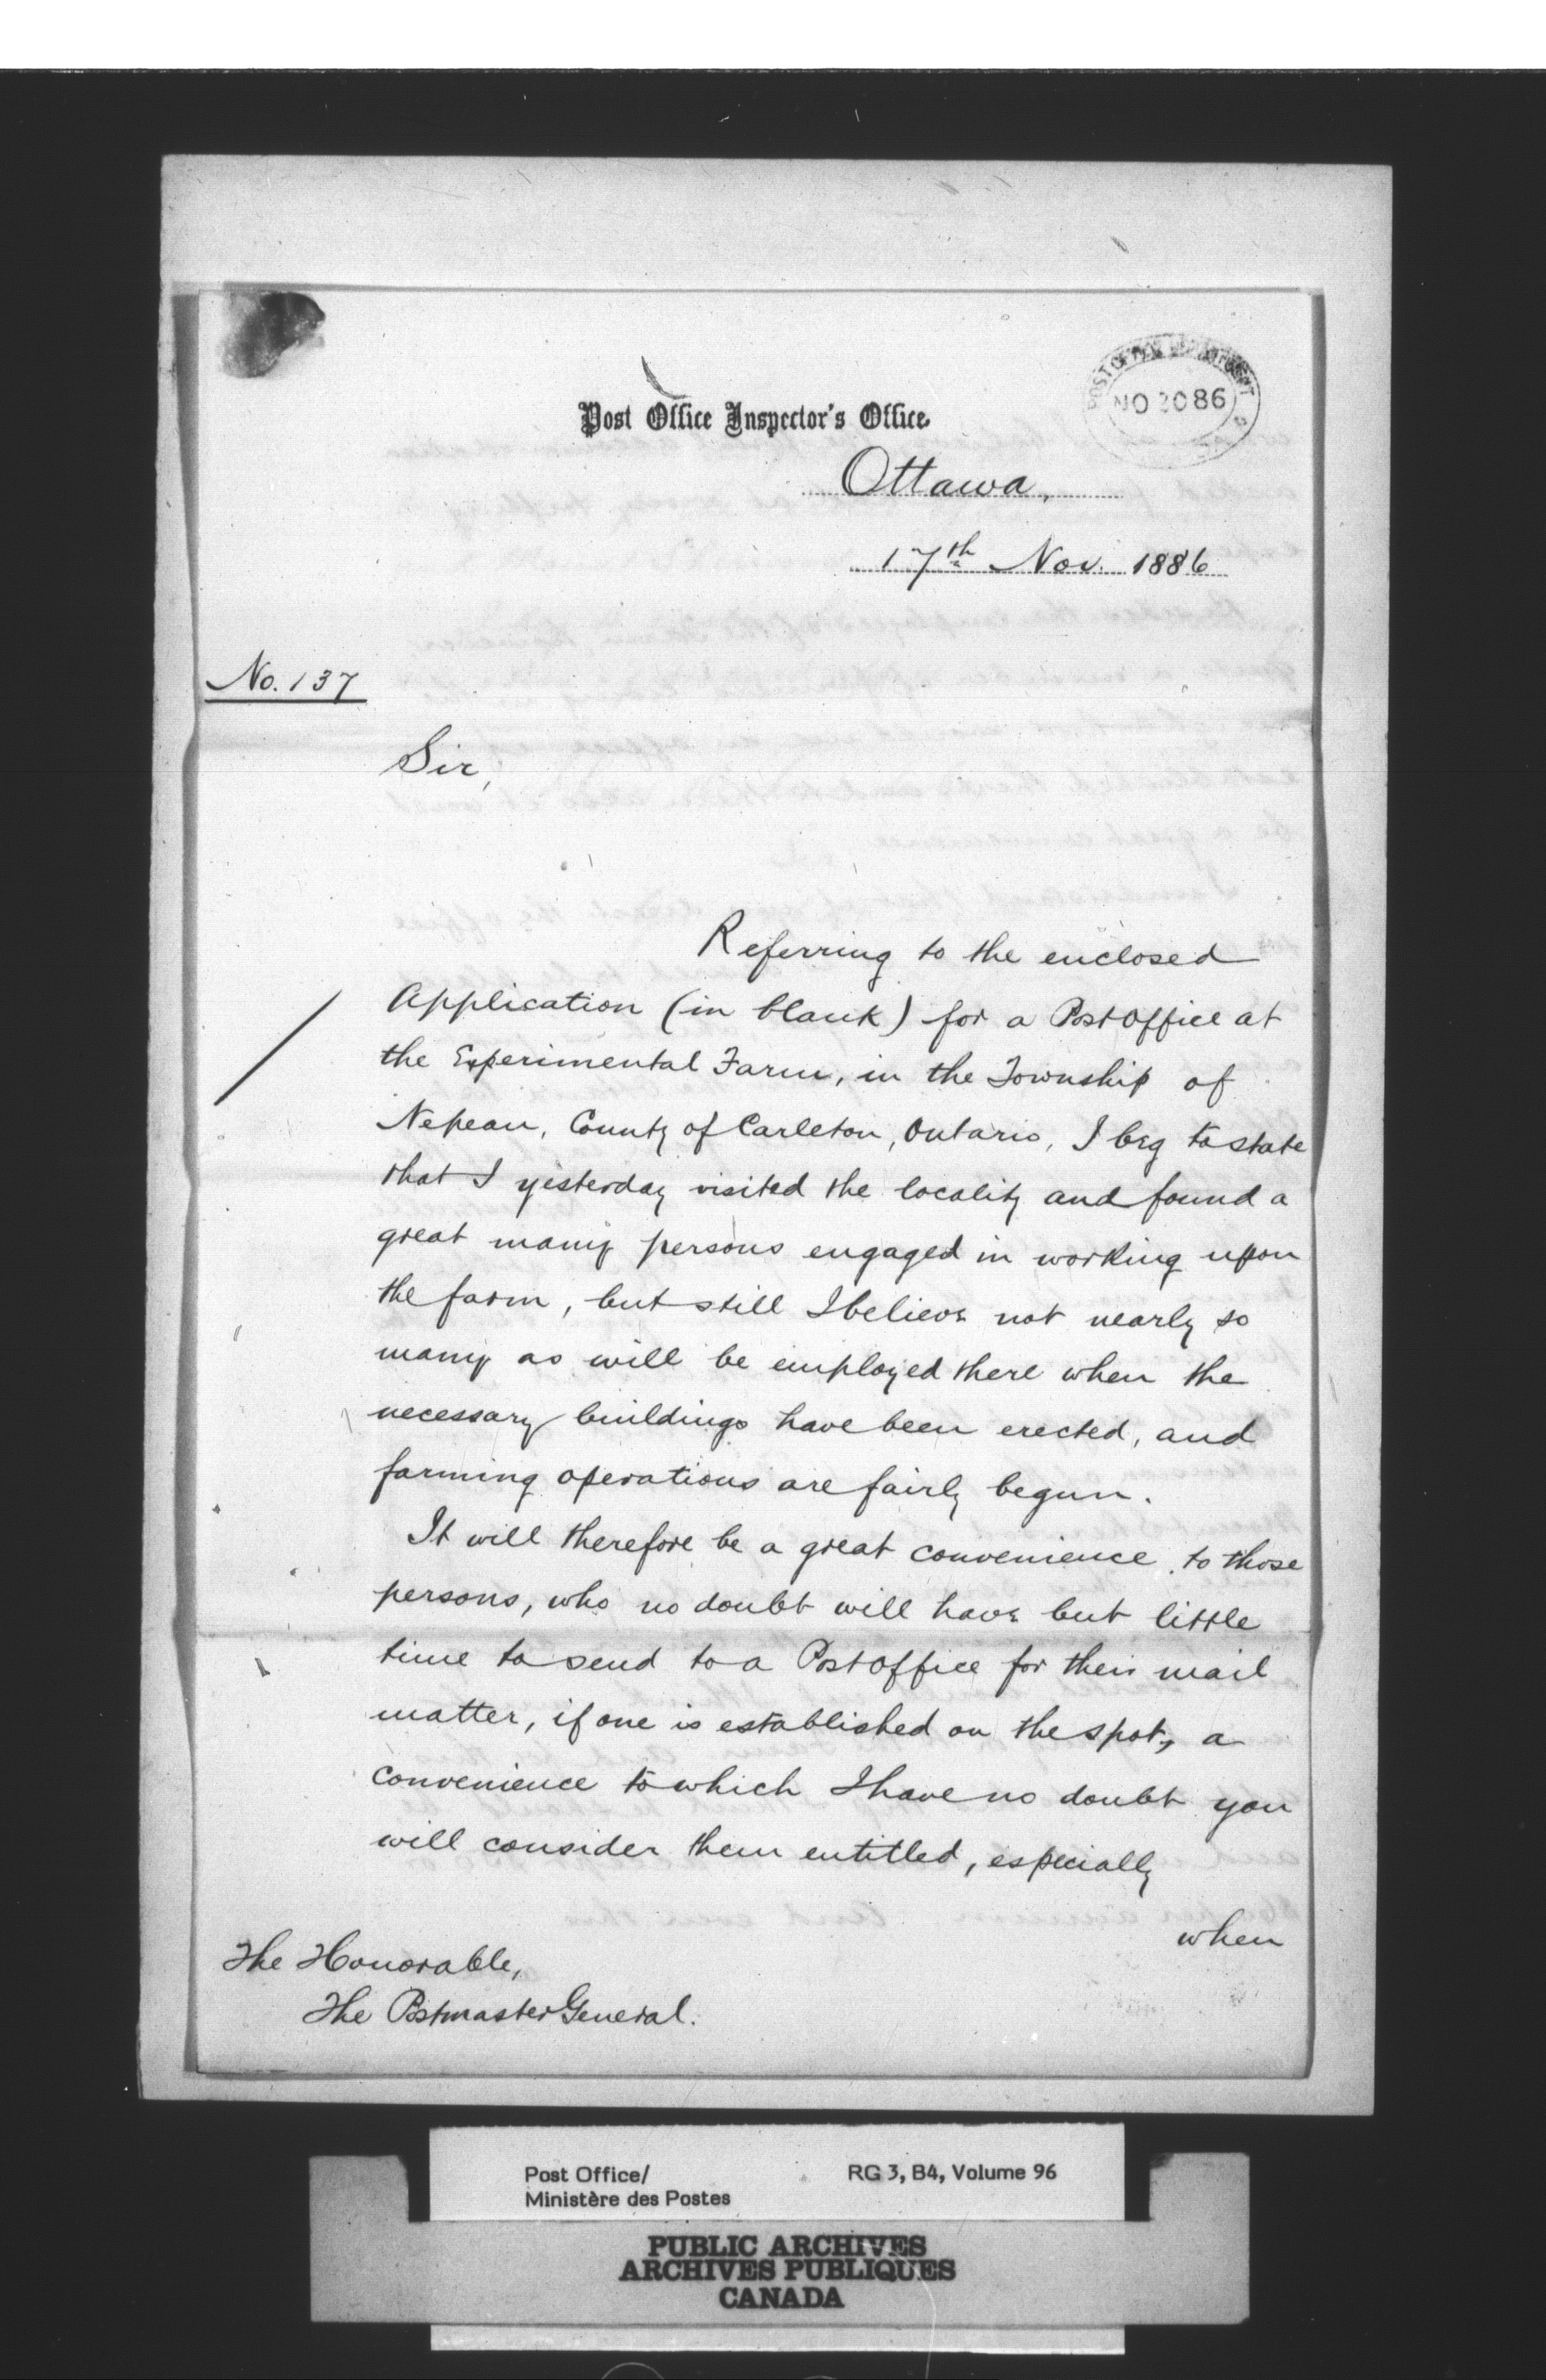 Post Office Inspector's Office.
POST OFFICE DEPARTMENT
NO 20 86
Ottawa,
17th Nov. 1886
No. 137
Sir,
Referring to the enclosed
Application (in blank) for a Post Office at
the Experimental Farm, in the Township of
Nepean, County of Carleton, Ontario, I beg to state
that I yesterday visited the locality and found a
great many persons engaged in working upon
the farm, but still I believe not nearly so
many as will be employed there when the
necessary buildings have been erected, and
farming operations are fairly begun.
It will therefore be a great convenience to those
persons, who no doubt will have but little
time to send to a Post Office for their mail
matter, if one is established on the spot, a
convenience to which I have no doubt you
will consider them entitled, especially
when
The Honorable,
The Postmaster General.
Post Office/
Ministère des Postes
RG 3, B4, Volume 96
PUBLIC ARCHIVES
ARCHIVES PUBLIQUES
CANADA